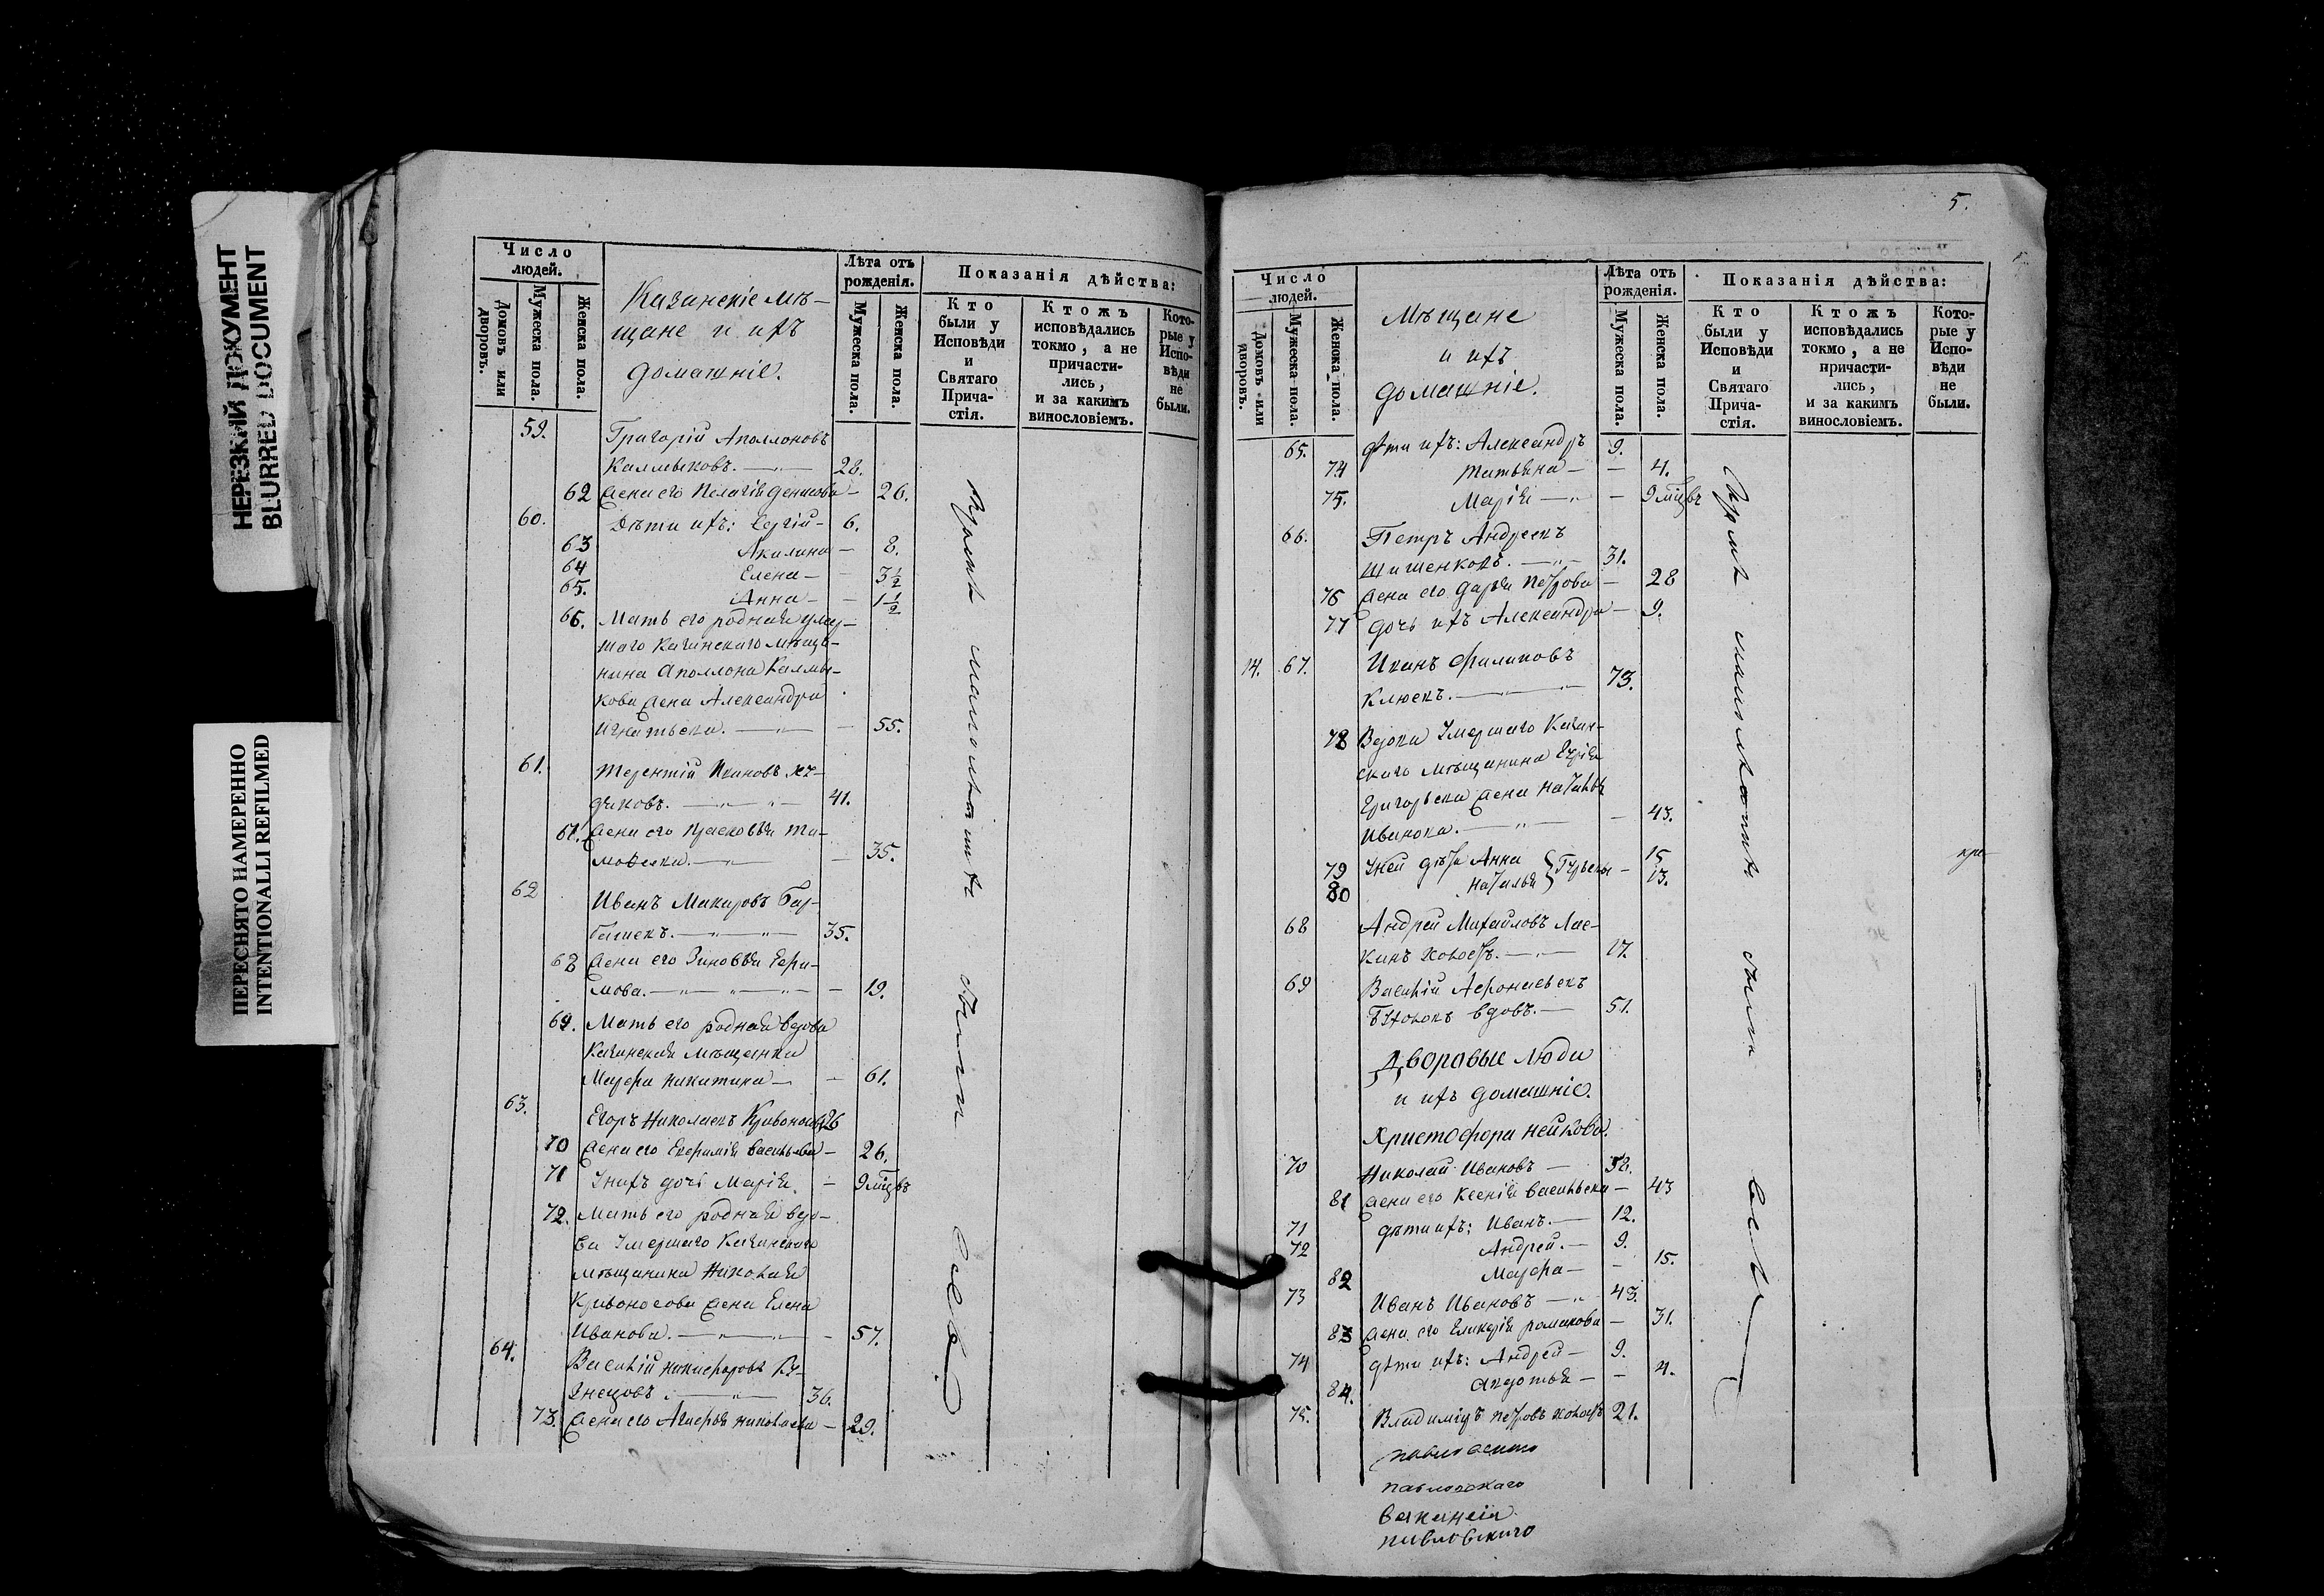 НЕРЕЗКИЙ ДОКУМЕНТ
BLURRED DOCUMENT
ПЕРЕСНЯТО НАМЕРЕННО
INTENTIONALLI REFILMED
Число людей.
Домовъ или дворовъ.
Мужеска пола.
Женска пола.
Казанскіе мѣ-
щане и ихъ
домашніе.
Лѣта отъ рожденія.
Мужеска пола.
Женска пола.
Показанія дѣйства:
Кто были у Исповѣди и Святаго Прича-стія.
Ктожъ исповѣдались токмо, а не причасти-лись, и за какимъ винословіемъ.
Кото-рые у Испо-вѣди не были.
59. Григорій Аполлоновъ
Калмыковъ. 28.
62 Жена его Пелагія Денисова 26.
60. Дѣти ихъ: Сергій 6.
63 Акилина 8.
64 Елена 3 1/2
65. Анна 1 1/2
66. Мать его родная умер-
шаго Казанскаго мѣща-
нина Аполлона Калмы-
кова жена Александра
Игнатьева. 55.
61. Терентій Ивановъ
41.
67. Жена его Прасковья Ти-
мофеева. 35.
62 Иванъ Макаровъ
35.
68 Жена его Зиновья Ефи-
мова. 19.
69. Мать его родная вдова
Казанская мѣщанка
Марфа Никитина 61.
63. Егоръ Николаевъ Кривоносовъ 26
70 Жена его Евфимія Васильева 26.
71 У нихъ дочь Марія. 9 мѣцвъ
72. Мать его родная вдо-
ва умершаго Казанскаго
мѣщанина Николая
Кривоносова жена Елена
Иванова. 57.
64. Василій Никифоровъ Ку-
знецовъ 36.
73. Жена его Агафья Николаева 29.
Кромѣ малолѣтнихъ были всѣ
5.
Число людей.
Домовъ или дворовъ.
Мужеска пола.
Женска пола.
Мѣщане
и ихъ
домашніе.
Лѣта отъ рожденія.
Мужеска пола.
Женска пола.
Показанія дѣйства:
Кто были у Исповѣди и Святаго Прича-стія.
Ктожъ исповѣдались токмо, а не причасти-лись, и за какимъ винословіемъ.
Кото-рые у Испо-вѣди не были.
65. Дѣти ихъ: Александръ 9.
74 Татьяна 4.
75. Марія 9 мѣцвъ
66. Петръ Андреевъ
Шишенковъ. 31.
76 Жена его Дарья Петрова 28
77 Дочь ихъ Александра 9.
14. 67. Иванъ Филиповъ
Клюевъ. 73.
78 Вдова умершаго Казан-
скаго мѣщанина
Григорьева жена Наталья
Иванова. 43.
79 У ней дѣти Анна 15
80 Наталья Гурьевы 13.
68 Андрей Михайловъ Лас-
кинъ холостъ. 17.
69 Василій Афонасьевъ
вдовъ. 51.
Дворовые люди
и ихъ домашніе.
Христофора Нейкова.
70 Николай Ивановъ 58.
81 Жена его Ксенія Васильева 43
71 Дѣти ихъ: Иванъ. 12.
72 Андрей. 9.
82 Марфа 15.
73 Иванъ Ивановъ 43.
83 Жена его Гликерія Романова 31.
74 Дѣти ихъ: Андрей 9.
84. Авдотья 4.
75. Владиміръ Петровъ холостъ 21.
павловскаго
павловскаго
Кромѣ малолѣтнихъ были всѣ